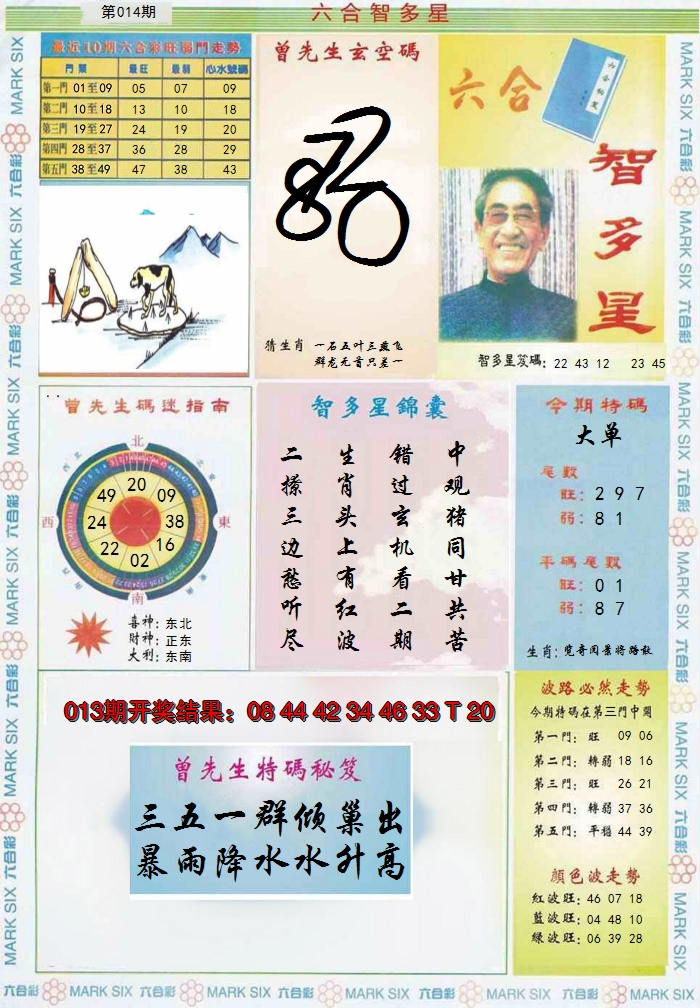 第014期
六合智多星
最近10期六合彩旺弱門走勢
門票 最旺 最弱 心水號碼
第一門 01至09 05 07 09
第二門 10至18 13 10 18
第三門 19至27 24 19 20
第四門 28至37 36 28 29
第五門 38至49 47 38 43
曾先生玄空碼
猜生肖 一石五叶三燕飞
群龙元首只差一
六合
智多星
智多星笈碼: 22 43 12 23 45
曾先生碼迷指南
北
西 東
南
20
49 09
24 38
22 16
02
喜神: 东北
財神: 正东
大利: 东南
智多星錦囊
中观猪同甘共苦
错过玄机看二期
生肖头上有红波
二撩三边愁听尽
今期特碼
大单
尾數
旺: 2 9 7
弱: 8 1
平碼尾數
旺: 0 1
弱: 8 7
生肖: 览奇闻景将路散
013期开奖结果: 08 44 42 34 46 33 T 20
曾先生特碼秘笈
三五一群倾巢出
暴雨降水水升高
波路必然走勢
今期特碼在第三門中開
第一門: 旺 09 06
第二門: 轉弱 18 16
第三門: 旺 26 21
第四門: 轉弱 37 36
第五門: 平穩 44 39
顔色波走勢
紅波旺: 46 07 18
藍波旺: 04 48 10
绿波旺: 06 39 28
六合彩 MARK SIX 六合彩 MARK SIX 六合彩 MARK SIX 六合彩 MARK SIX 六合彩